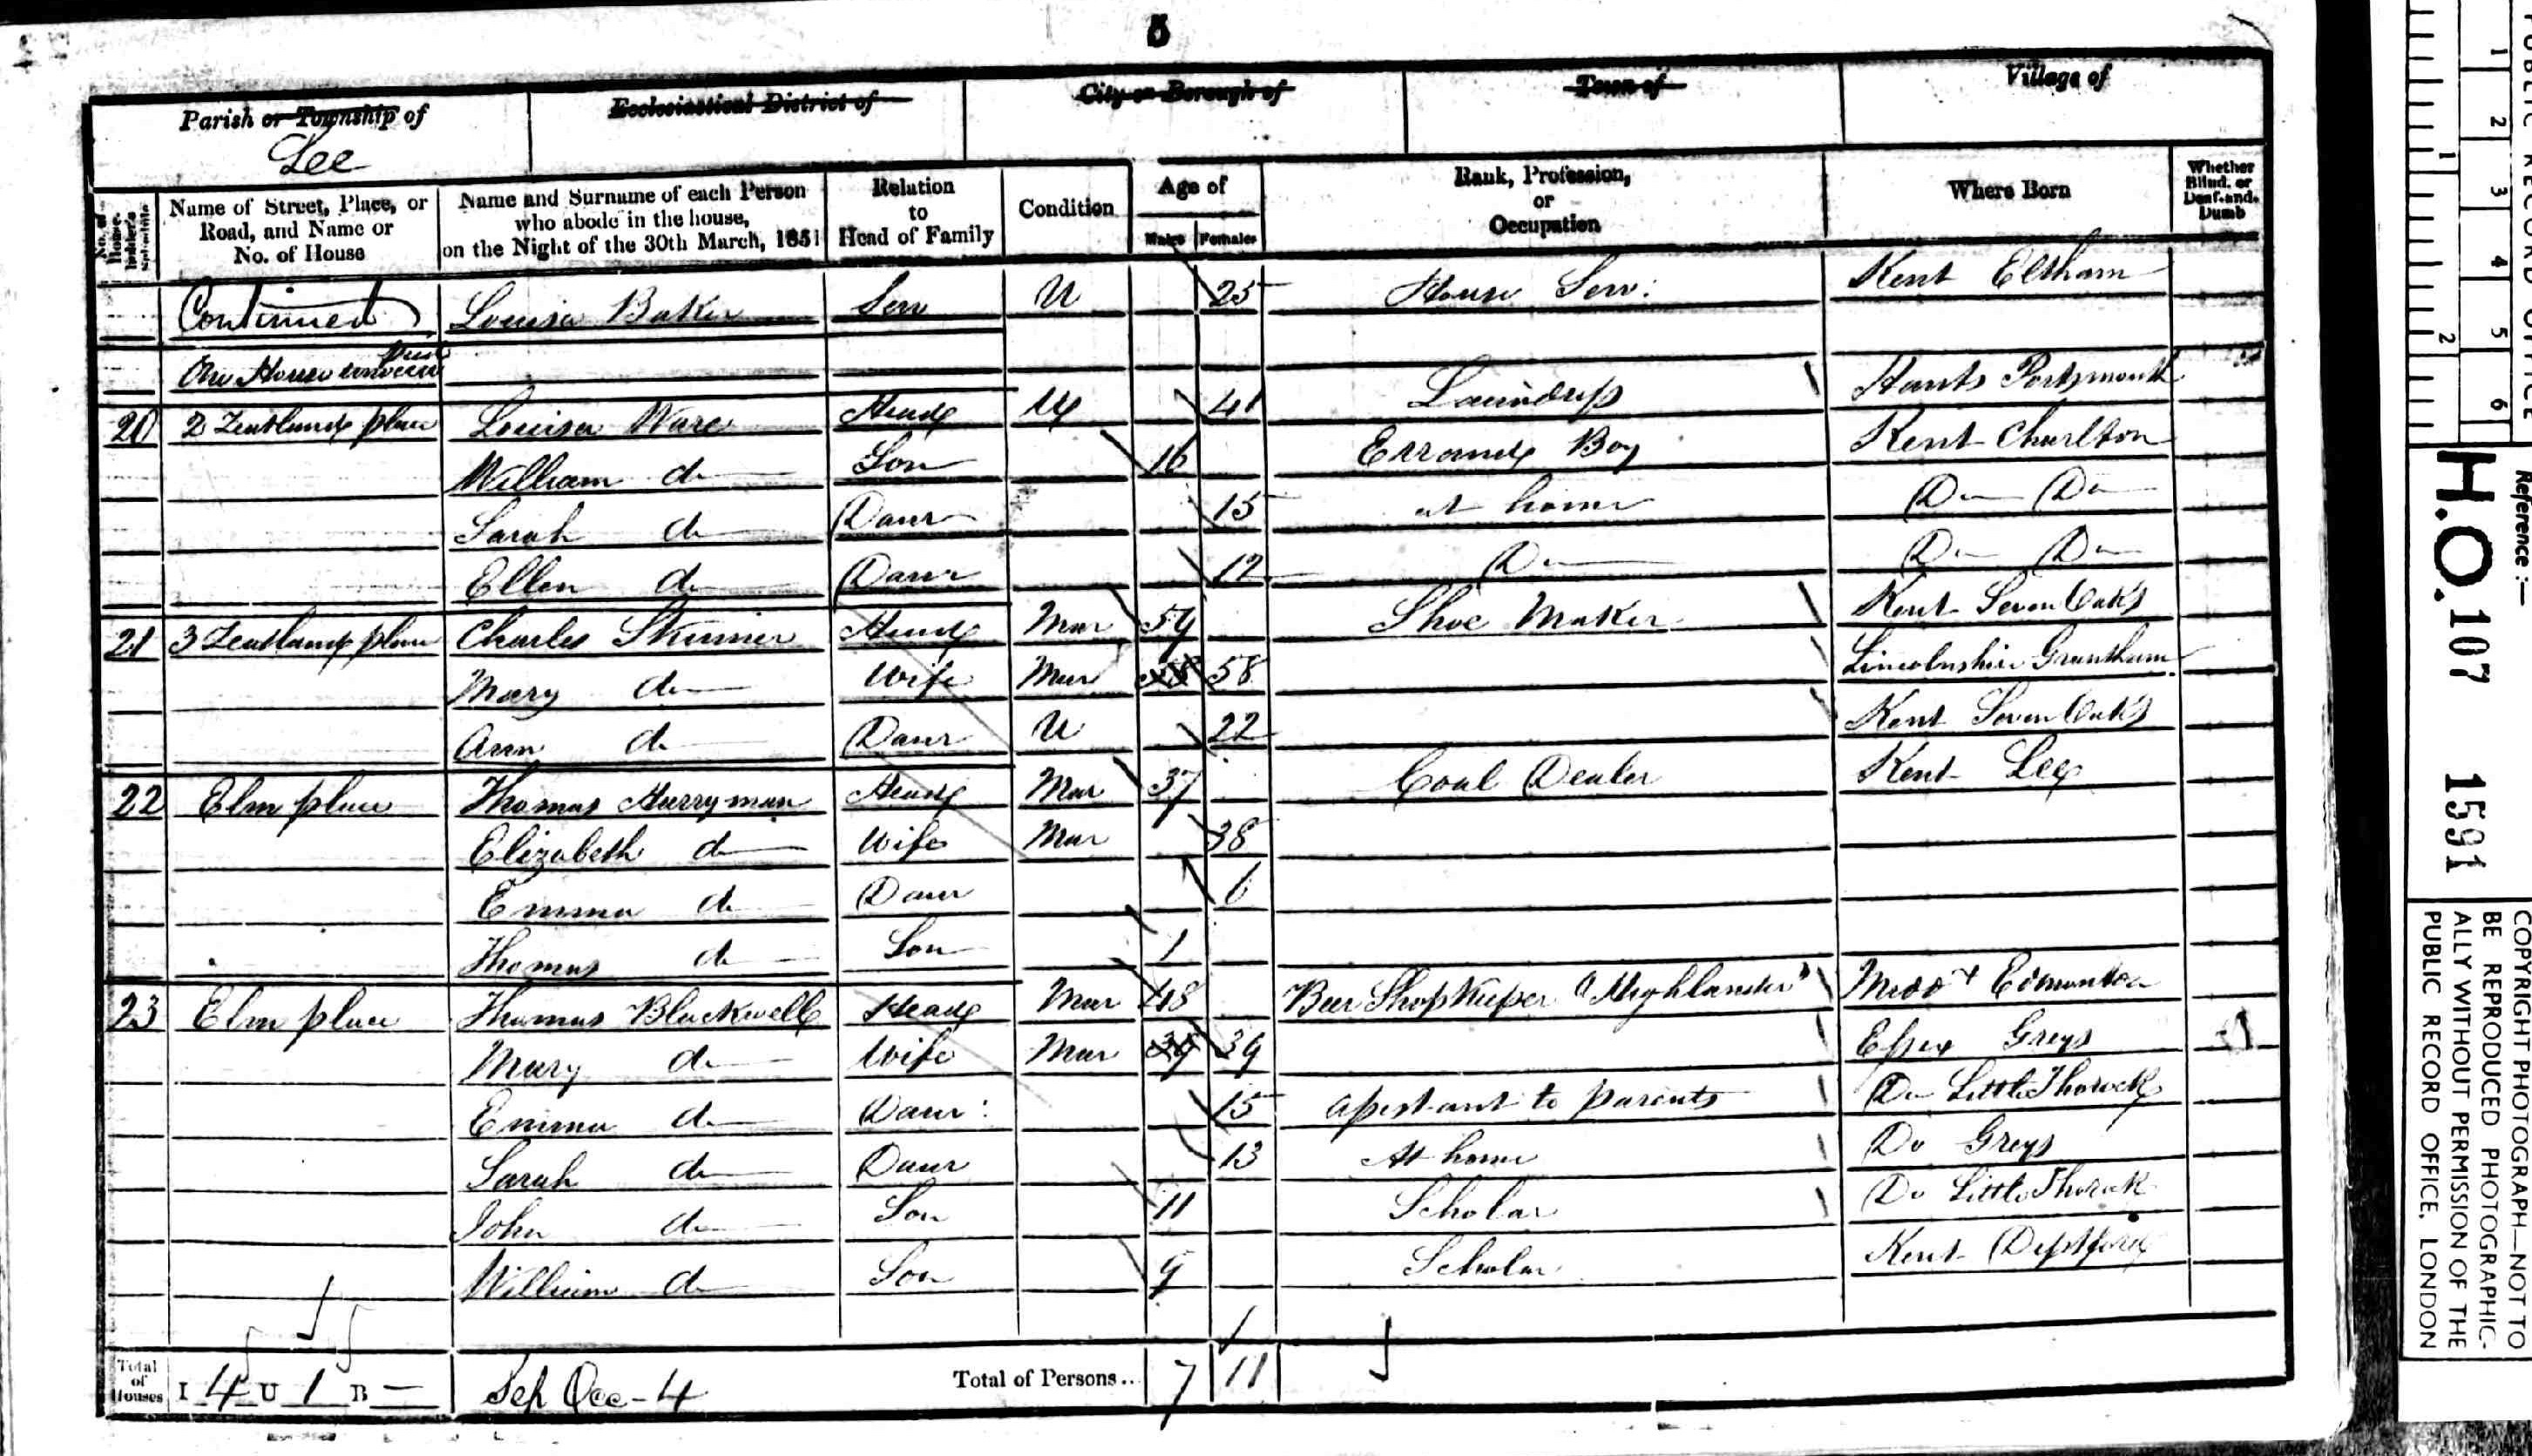 5
Parish or Township of Ecclesiastical District of City or Borough of Town of Village of
Lee
No. of House-holder's Schedule Name of Street, Place, or Road, and Name or No. of House Name and Surname of each Person who abode in the house, on the Night of the 30th March, 1851 Relation to Head of Family Condition Age of Males Females Rank, Profession, or Occupation Where Born Whether Blind, or Deaf-and-Dumb
Continued Louisa Baker Serv U 25 House Serv: Kent Eltham
One House
20 2 Zeatland place Louisa Ware Head 41 Laundress Hants Portsmouth
William do Son 16 Errand Boy Kent Charlton
Sarah do Daur 15 at home Do Do
Ellen do Daur 12 Do Do Do
21 3 Zeatland place Charles Skinner Head Mar 59 Shoe Maker Kent Seven Oaks
Mary do Wife Mar 58 58 Lincolnshire Grantham
Ann do Daur U 22 Kent Seven Oaks
22 Elm place Thomas Harryman Head Mar 37 Coal Dealer Kent Lee
Elizabeth do Wife Mar 38
Emma do Daur 6
Thomas do Son 1
23 Elm place Thomas Blackwell Head Mar 48 Beer Shopkeeper "Highlander" Middx Edmonton
Mary do Wife Mar 39 39 Essex Greys
Emma do Daur: 15 assistant to parents Do Little Thorock
Sarah do Daur 13 At home Do Greys
John do Son 11 Scholar Do Little Thorock
William do Son 9 Scholar Kent Deptford
Total of Houses I 4 U 1 B — Sep Occ - 4 Total of Persons.. 7 11
PUBLIC RECORD OFFICE
1 2 3 4 5 6
1 2
Reference:—
H.O. 107 1591
COPYRIGHT PHOTOGRAPH—NOT TO
BE REPRODUCED PHOTOGRAPHIC-
ALLY WITHOUT PERMISSION OF THE
PUBLIC RECORD OFFICE, LONDON